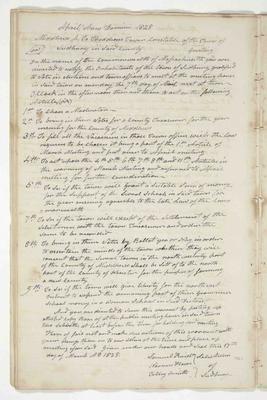 April Anno Domini 1828
Middlesex Ss To Theodore Constable of the Town of
Sudbury in said County Greeting
In the name of the Commonwealth of Massachusetts you are
directed to notify the Inhabitants of the Town of Sudbury qualified
to vote in elections and town affairs to meet at the meeting house
in said town on monday the 7th day of April next at
O'Clock in the afternoon then and there to act on the following
Articles
1st To Chose a Moderator
2d To bring in their Votes for a County Treasurer for the year
ensuing for the County of Middlesex
3d To fill all the Vacancies in those Town offices which the law
requires to be chosen it being a part of the 2d Article of
March Meeting and put over to April meeting
4th To act upon the 4th 5th 6th 7th 8th and 11th Articles in
the warning of March Meeting and adjourned to April
meeting for further consideration
5th To see if the town will grant a suitable sum of money
for the support of the School in said town for
the year ensuing agreeable to the late law of the Com
monwealth
7th To see if the town will except of the settlement of the
Selectmen with the town Treasurer and order the
same to be recorded
8th To bring in their Votes by Ballot yea or Nay in order
to ascertain the minds of the town whether they will
consent that the several towns in the north part
of the County of Middlesex shall be set of to the north
part of the County of Worcester for the purpose of forming
a new County
9th To see if the town will give liberty for the north west
District to expend the remaining part of their Summer
school money in a Woman School in said District
And you are directed to serve this warrant by posting up
attested copy thereof at the public meeting house in said town
two Sabbaths at least before the time for holding said meeting
There of fail not and make due return of this warrant with
your doings then on to our selves at the time and place of
meeting afore said Given under our hands and Seal this 17th
day of March AD 1828.
Samuel Puffer Selectmen
of
Sudbury